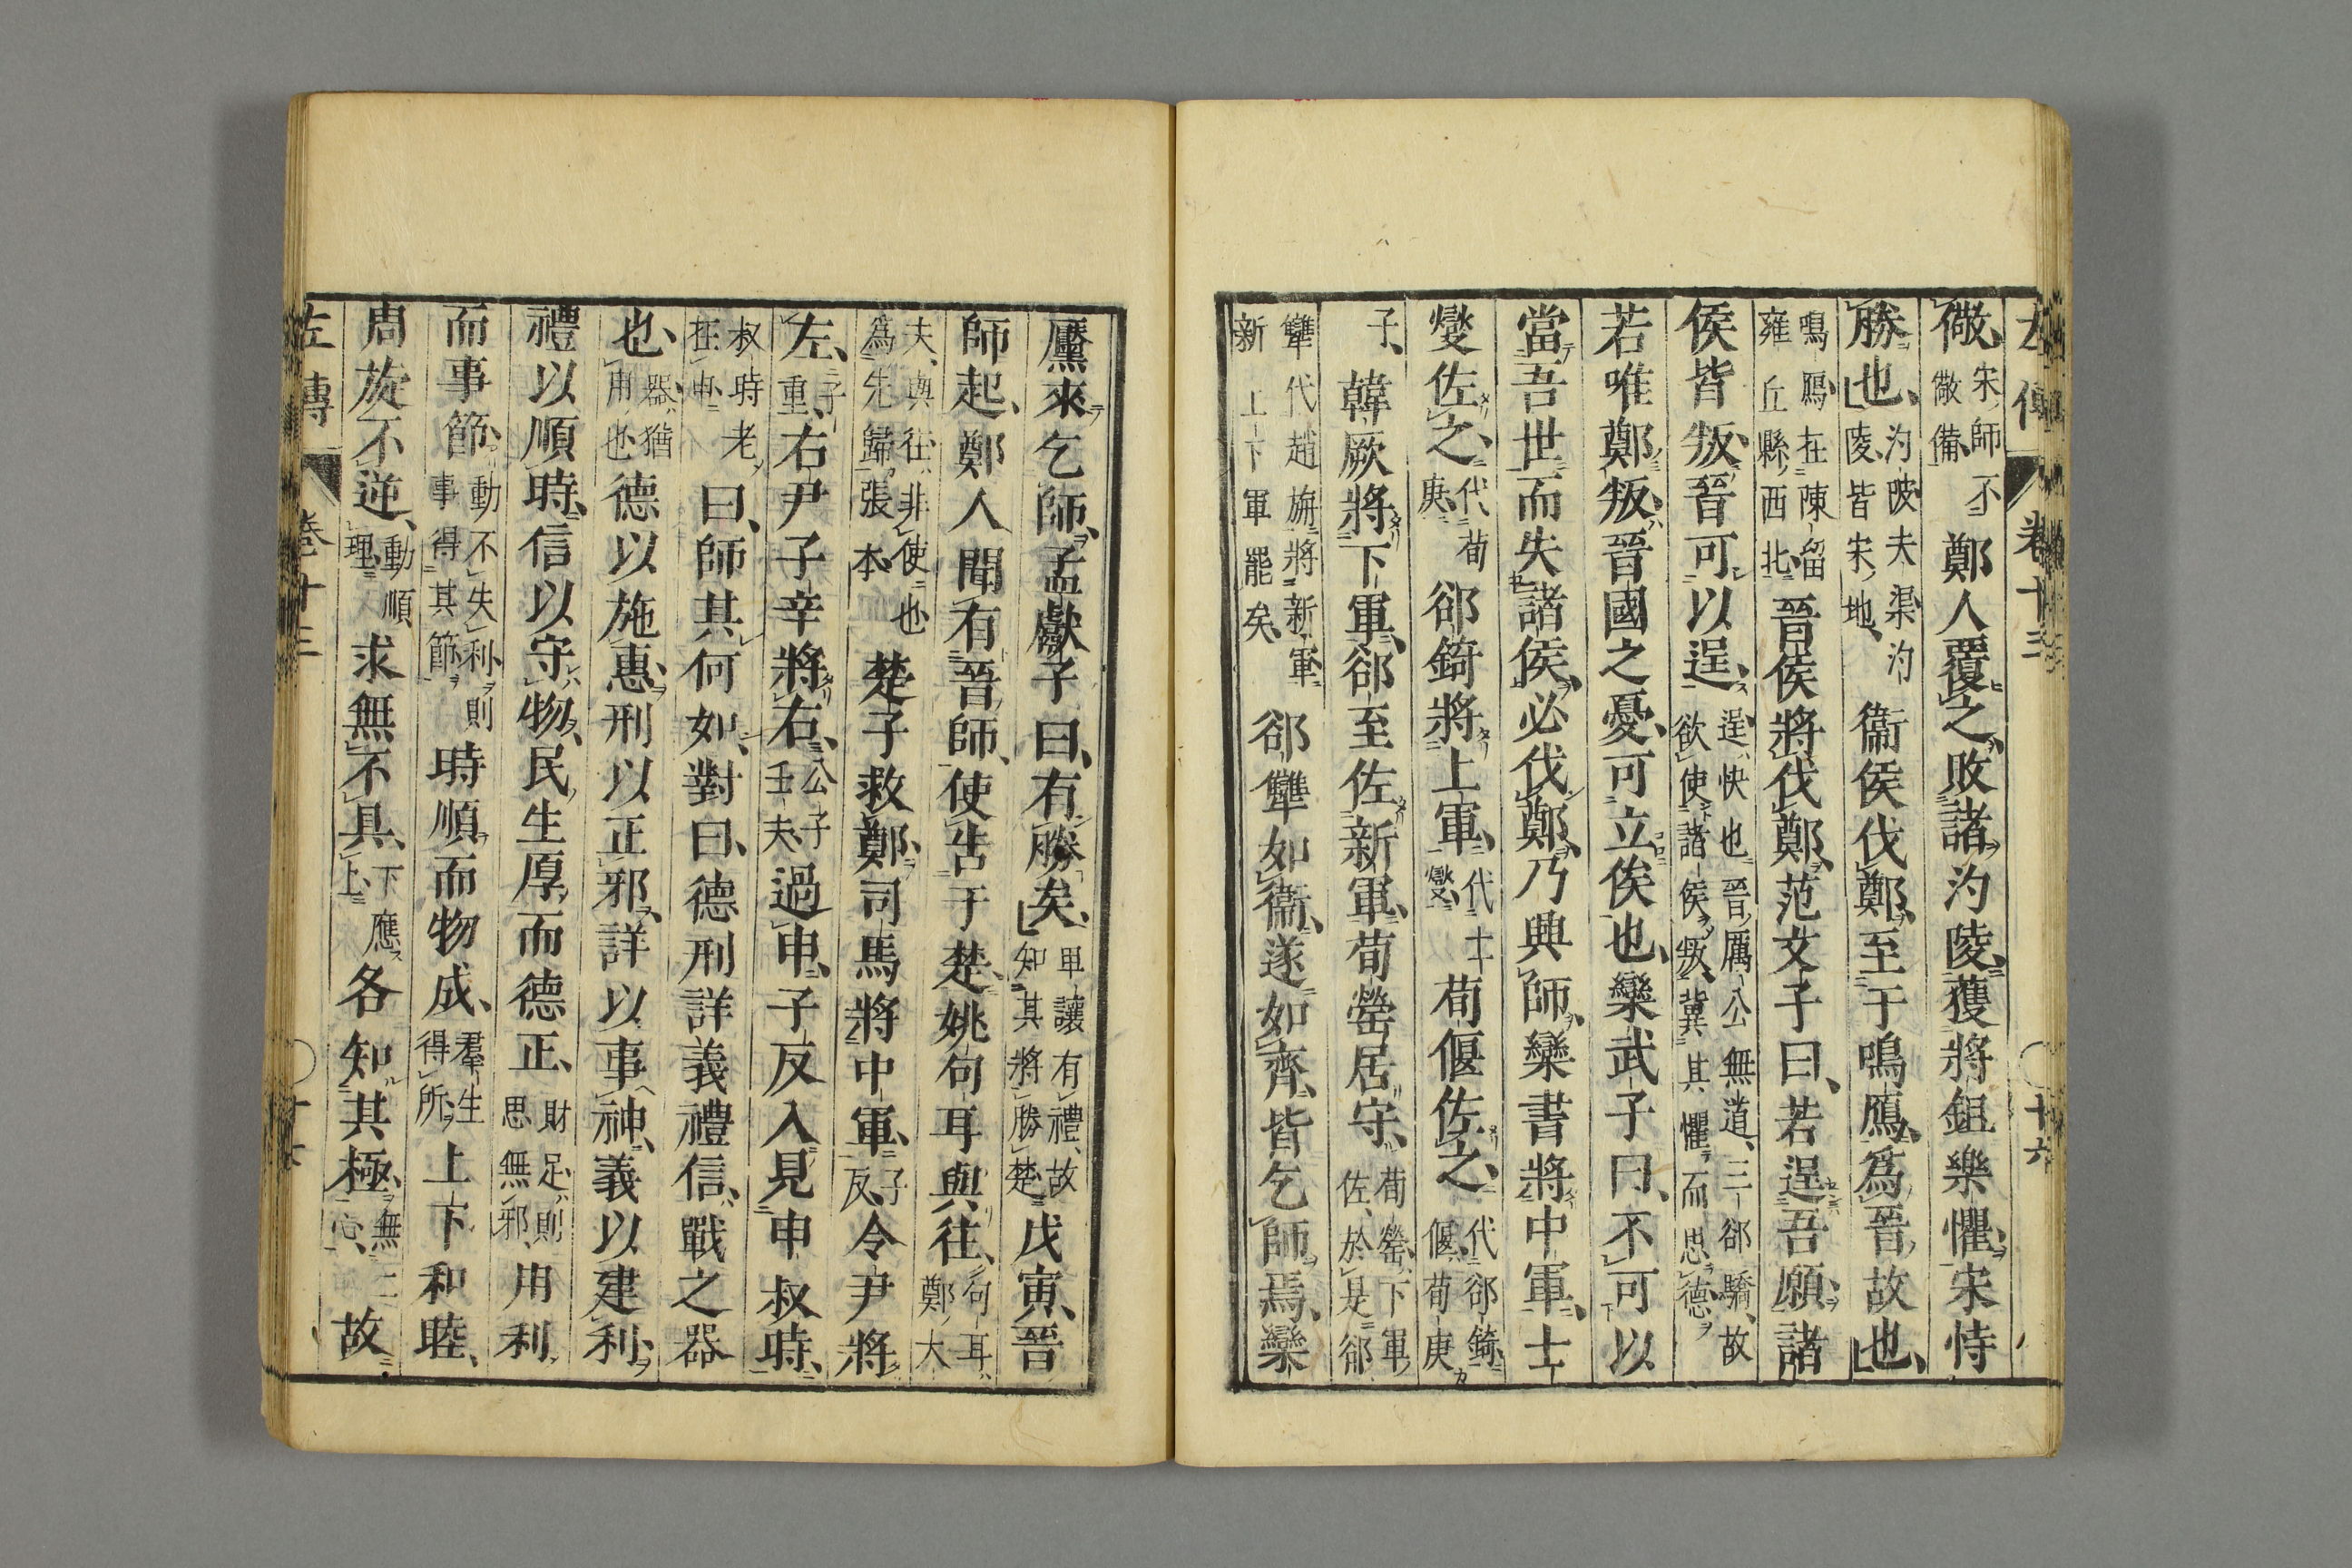 左傳 卷十三 十六
儆、宋師不儆備、鄭人覆之、敗諸汋陵、獲將鉏樂懼、宋恃
勝也、汋陂夫渠汋陵皆宋地、衞侯伐鄭、至于鳴鴈、爲晉故也、
鳴鴈在陳留雍丘縣西北、晉侯將伐鄭、范文子曰、若逞吾願、諸
侯皆叛、晉可以逞、逞快也晉厲公無道、三郤驕、故欲使諸侯叛、冀其懼而思德
若唯鄭叛、晉國之憂、可立俟也、欒武子曰、不可以
當吾世而失諸侯、必伐鄭、乃興師、欒書將中軍、士
燮佐之、代荀庚郤錡將上軍、代士燮荀偃佐之、代郤錡偃荀庚
子、韓厥將下軍、郤至佐新軍、荀罃居守、荀罃下軍佐、於是郤
犨代趙旃將新軍新上下軍罷矣、郤犨如衞、遂如齊、皆乞師焉、欒
黶來乞師、孟獻子曰、有勝矣、卑讓有禮、故知其將勝楚戊寅、晉
師起、鄭人聞有晉師、使告于楚、姚句耳與往、句耳、鄭大
夫、與往、非使也爲先歸張本、楚子救鄭、司馬將中軍、子反令尹將
左、子重、右尹子辛將右、公子壬夫過申、子反入見申叔時、
叔時老在申曰、師其何如、對曰、德刑詳義禮信、戰之器
也、器、猶用也德以施惠、刑以正邪、詳以事神、義以建利、
禮以順時、信以守物、民生厚、而德正、財足、則思無邪、用利、
而事節、動不失利、則事得其節、時順而物成、羣生得所、上下和睦、
周旋不逆、動順理、求無不具、下應上、各知其極、無二心、故
左傳 卷十三 十七